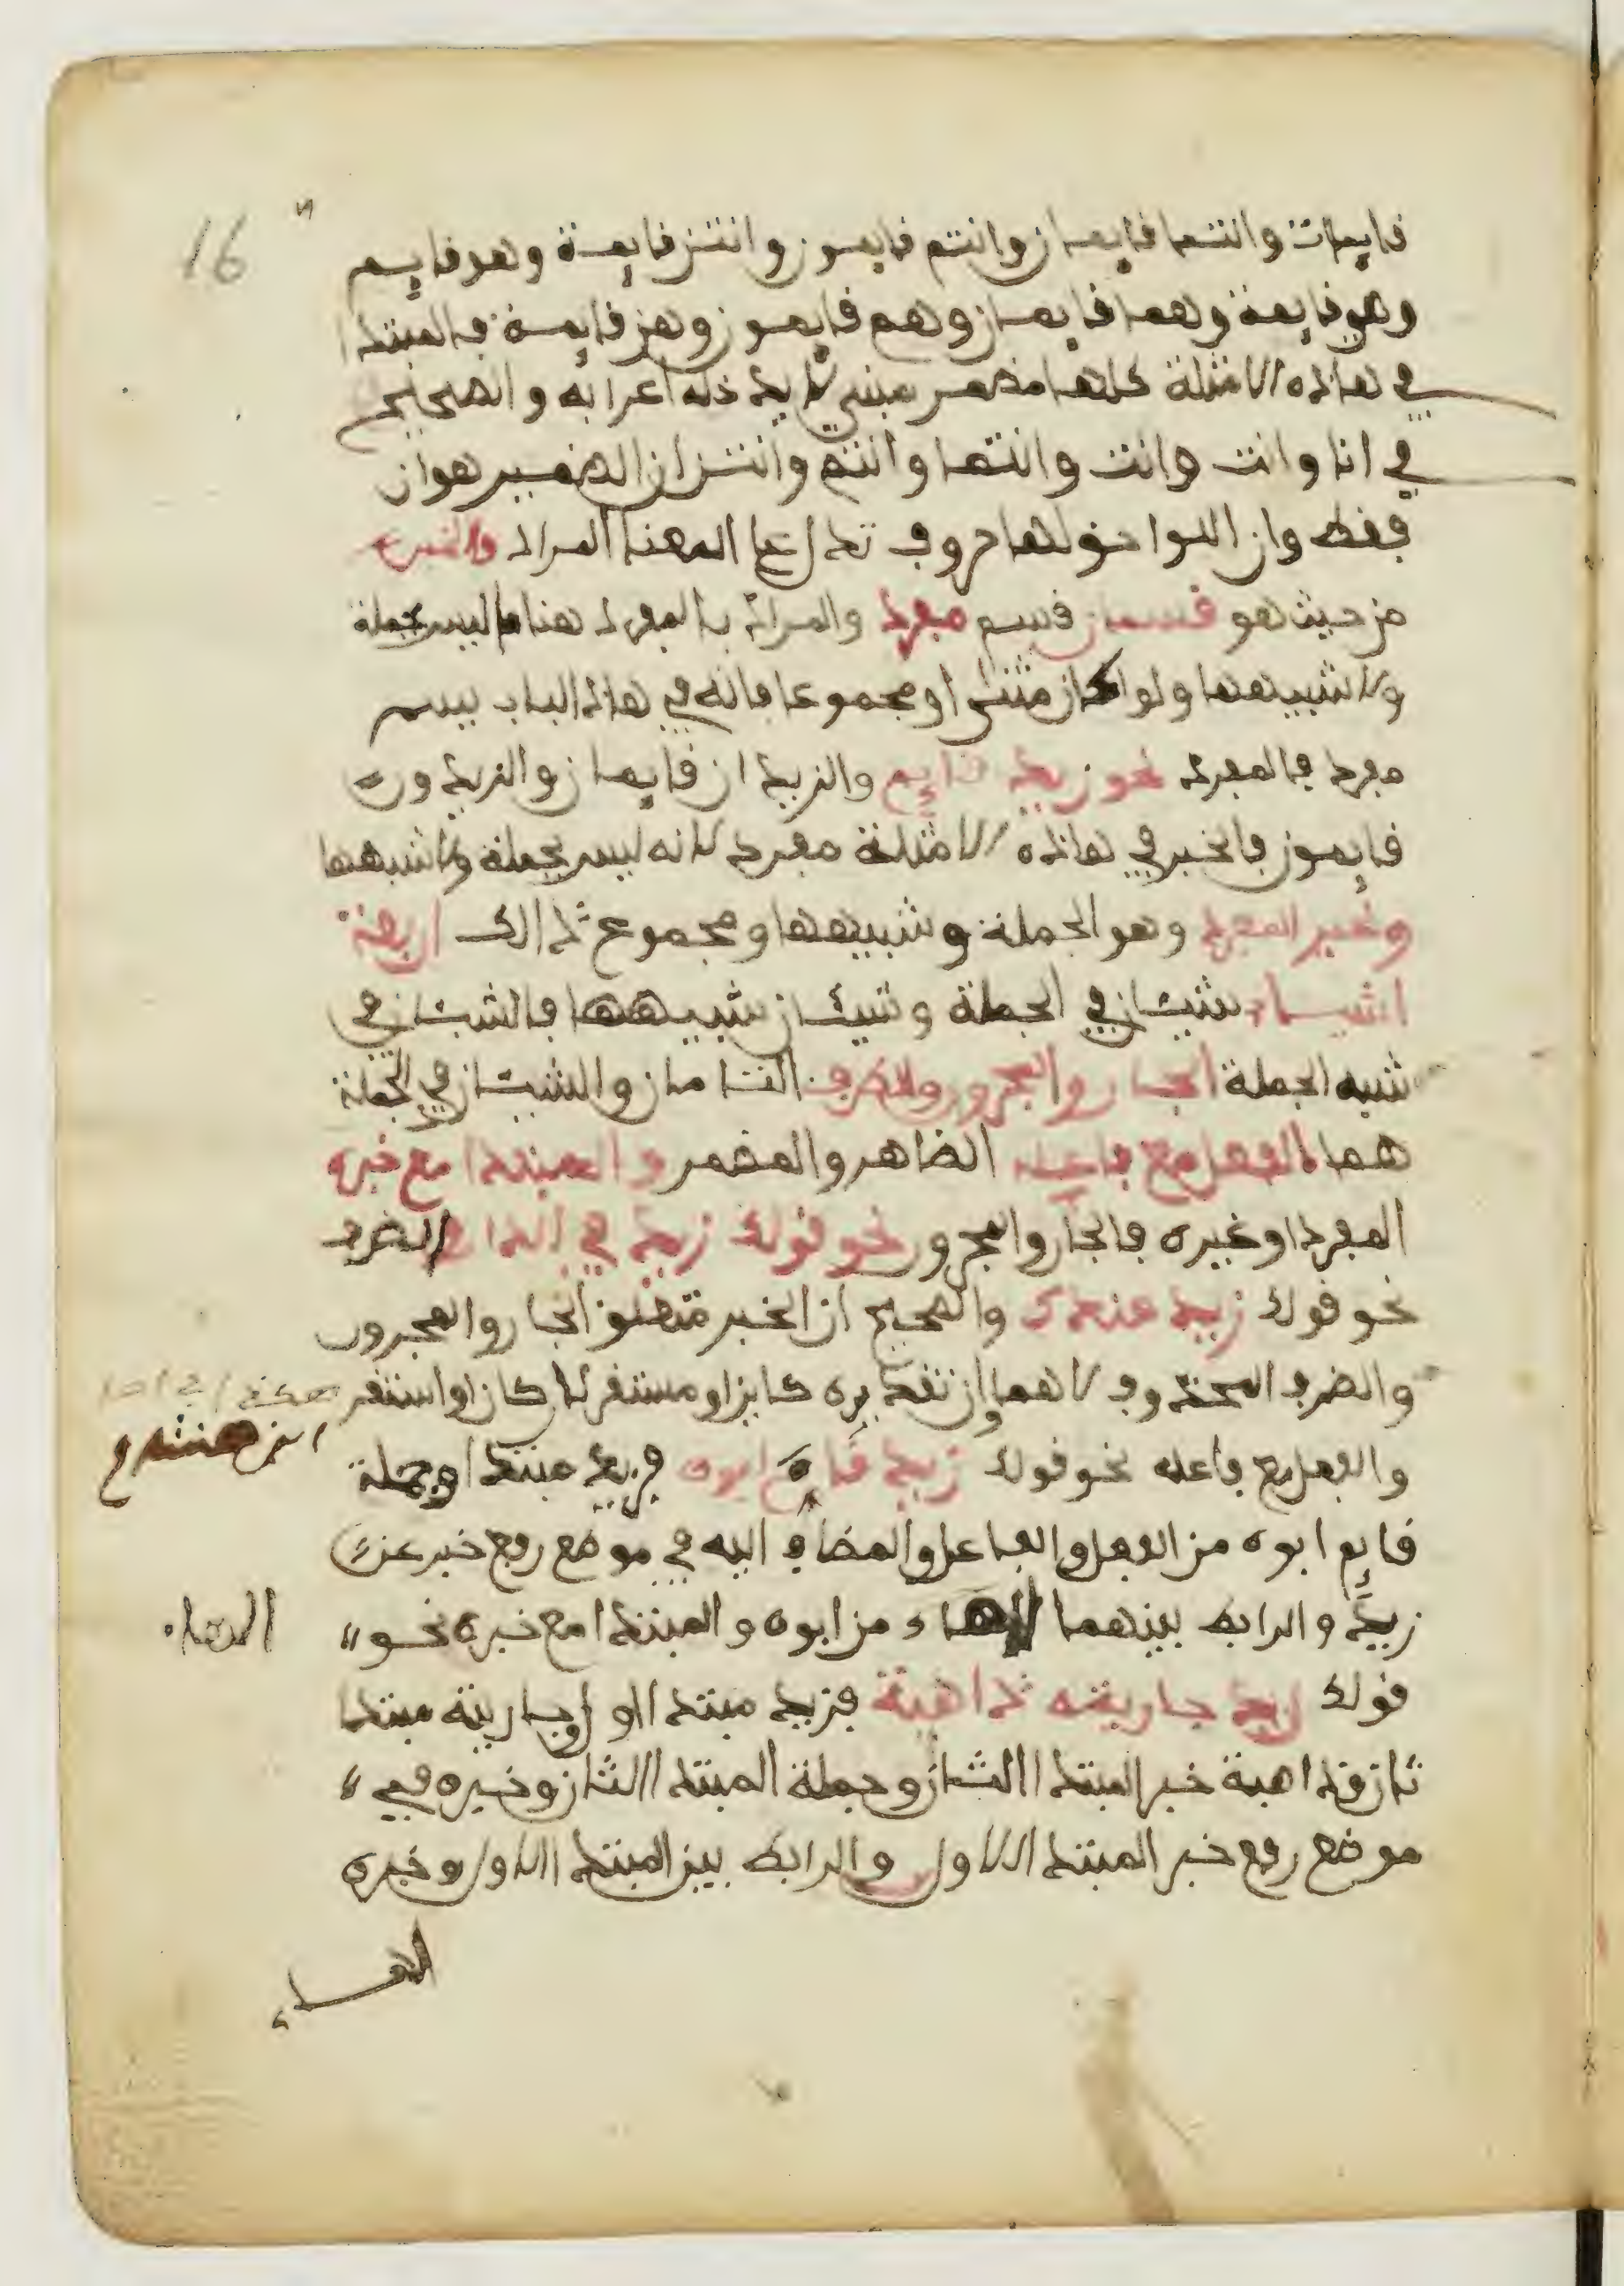 16
قايمات وانتما قايمان وانتم قايمون وانتن قايمة وهو قايم
وهي قايمة وهما قايمان وهم قايمون وهن قايمة فالمبتدا
في هاذه الامثلة كلها مضمر مبني لا يدخله اعرابه والصحيح
في انا وانت وانت وانتما وانتم وانتن ان الضمير هو ان
فقط وان اللواحق لها حروف تدل على المعنا المراد والخبر
من حيث هو قسمان قسم مفرد والمراد بالمفرد هنا ما ليس جملة
ولا شبيهها ولو كان مثنى او مجموعا فانه في هاذا الباب يسم
مفرد فالمفرد نحو زيد قايم والزيدان قايمان والزيدون
قايمون فالخبر في هاذه الامثلة مفرد لانه ليس بجملة ولا شبهها
وغير المفرد وهو الجملة وشبيهها ومجموع ذالك اربعة
اشياء شيئان في الجملة وشيئان شبيهها فالشيئان في
شبه الجملة الجار والمجرور والظرف التامان والشيئان في الجملة
هما الفعل مع فاعله الظاهر والمضمر والمبتدا مع خبره
المفرد او غيره فالجار والمجرور نحو قولك زيد في الدار والظرف
نحو قولك زيد عندك والصحيح ان الخبر متعلق الجار والمجرور
والضرف المحذوف لا هما وان تقديره كاين او مستقر لا كان او استقر
والفعل مع فاعله نحو قولك زيد قام ابوه فزيد مبتدا وجملة
قايم ابوه من الفعل والفاعل والمضاف اليه في موضع رفع خبر عن
زيد والرابط بينهما الهاء من ابوه والمبتدا مع خبره نحو
الهاء
قولك زيد جاريته ذاهبة فزيد مبتدا اول وجاريته مبتدا
ثان وذاهبة خبر المبتدا الثان وجملة المبتدا الثان وخبره في
موضع رفع خبر المبتدا الاول والرابط بين المبتدا الاول وخبره
الهاء